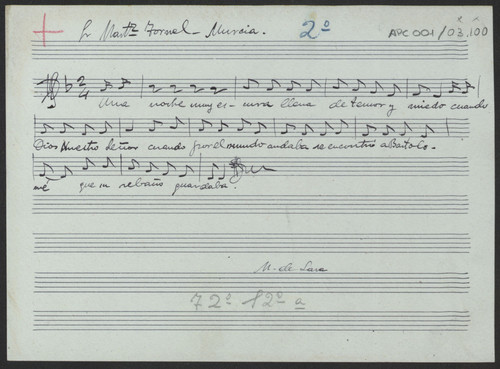 Sr Martz Tornel - Murcia. 2º APC 001/03.100
2/4
Una noche muy es- cura llena de temor y miedo cuando
Dios Nuestro Señor cuando por el mundo andaba se encontró a Bartolo-
mé que su rebaño guardaba.
M. de Lara
72º 12º a